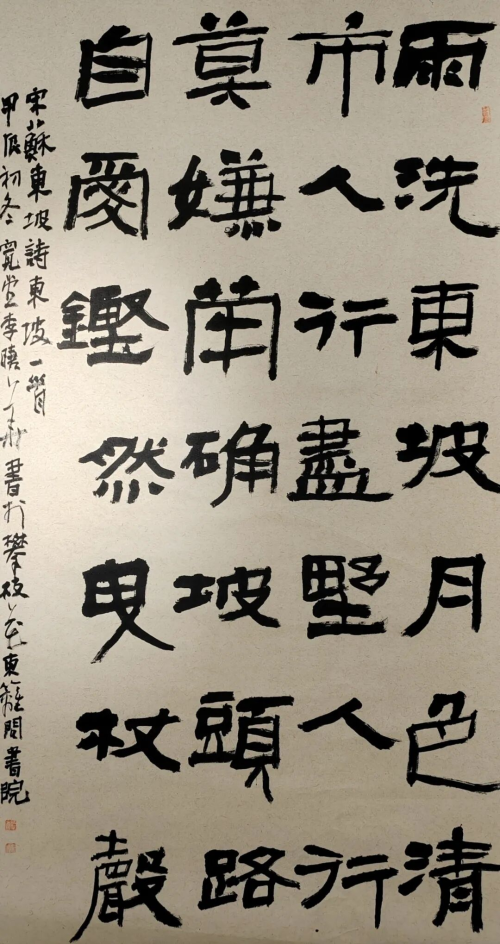 雨洗東坡月色清
市人行盡墅人行
莫嫌荦确坡頭路
自愛鏗然曳杖聲
宋蘇東坡詩東坡一首
甲辰初冬寬堂李曉書於攀枝花東籬閣書院